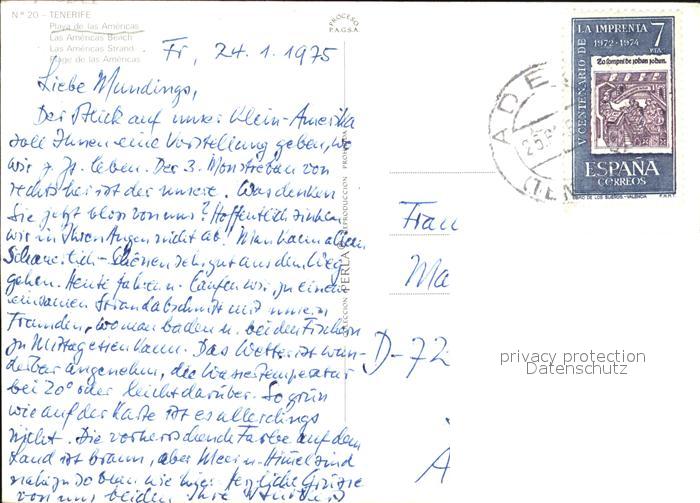 Nº 20 - TENERIFE
Playa de las Américas
Las Américas Beach
Las Américas Strand
Plage de las Américas
PROCESO
P.A.G.S.A.
Fr, 24.1.1975
Liebe Mundingo,
Der Blick auf unser Klein-Amerika
soll Ihnen eine Vorstellung geben, wo
wir z. Zt. leben. Der 3. Monstreban von
rechts her ist der unsere. Was denken
Sie jetzt bloss von uns? Hoffentlich sinken
wir in Ihren Augen nicht ab! Man kann allem
Schauerlich-Schönen sehr gut aus dem Weg
gehen. Heute fahren u. laufen wir zu einem
einsamen Strandabschnitt mit unseren
Freunden, wo man baden u. bei den Fischern
zu Mittag essen kann. Das Wetter ist wun-
derbar angenehm, die Wassertemperatur
bei 20° oder leicht darüber. So grün
wie auf der Karte ist es allerdings
nicht. Die vorherrschende Farbe auf dem
Land ist braun, aber Meer u. Himmel sind
nahezu so blau wie hier. Herzliche Grüsse
von uns beiden Ihre
COLECCION PERLA REPRODUCCION PROHIBIDA
V CENTENARIO DE LA IMPRENTA
1972-1974
7
PTA
ESPAÑA
CORREOS
F.N.M.T.
ADE
(TEN
Frau
Ma
D-72
A
privacy protection
Datenschutz